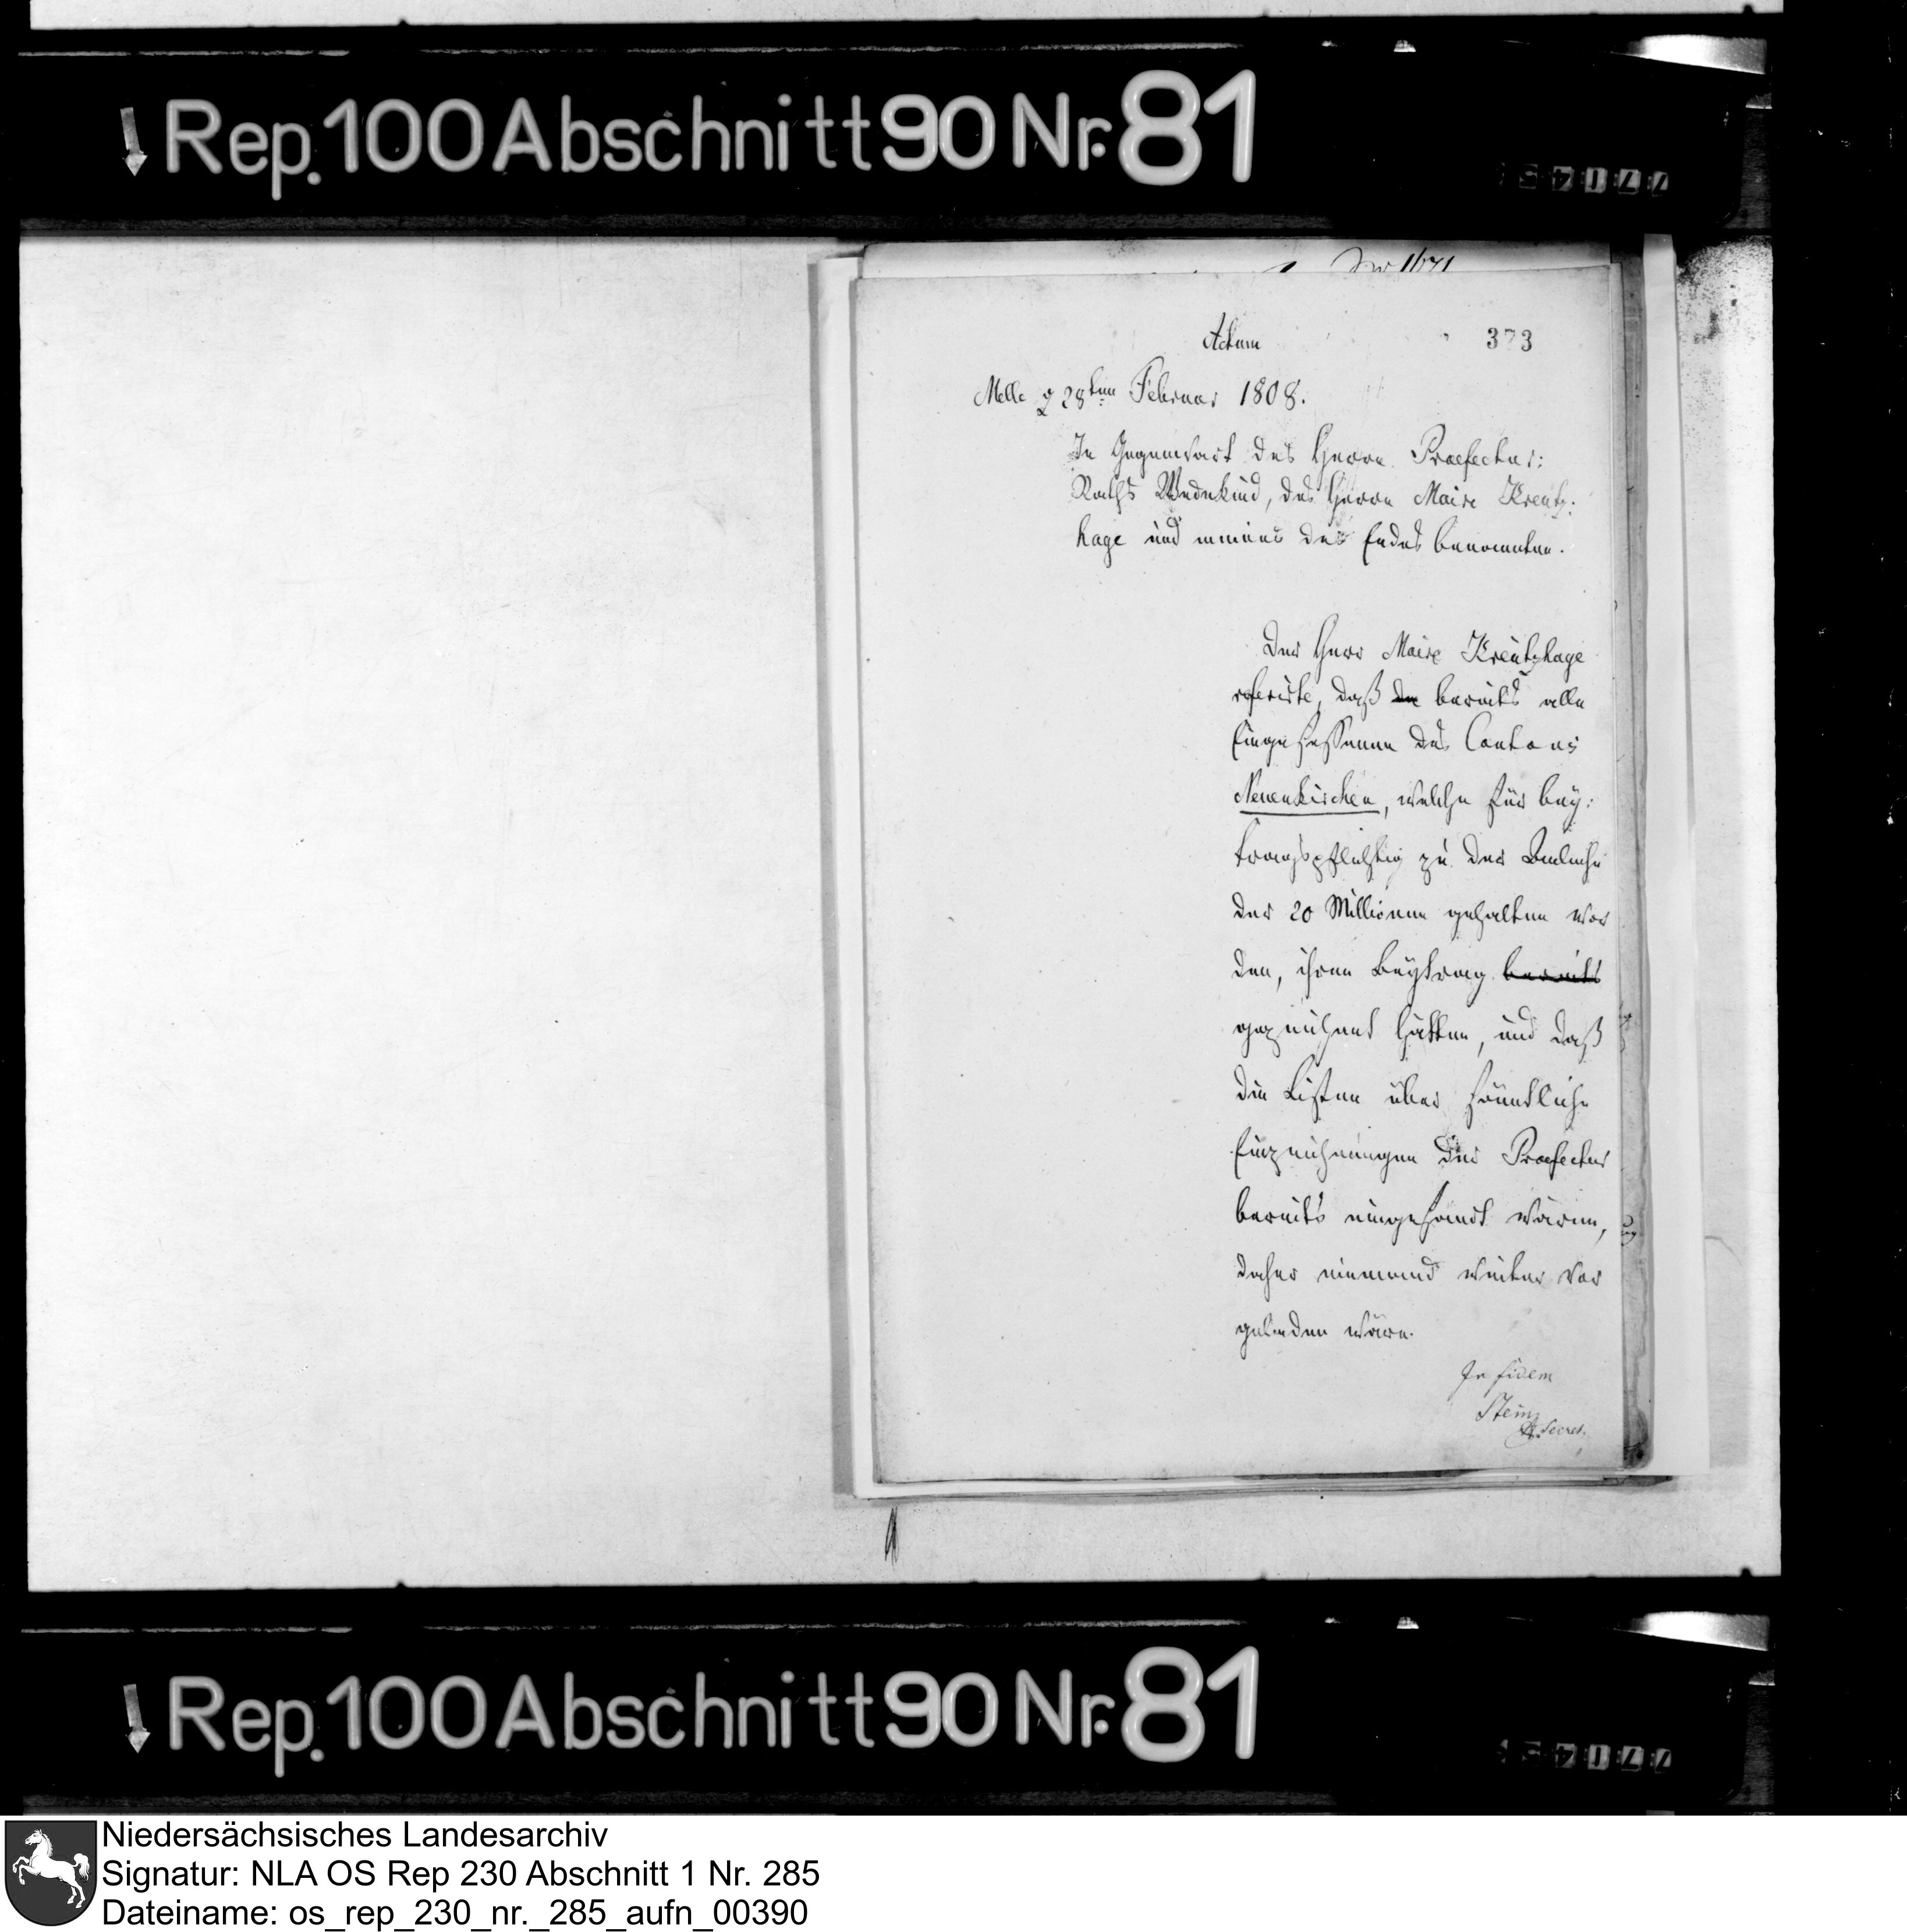 Rep. 100 Abschnitt 90 Nr. 81
Actum
373
Melle d 28ten Februar 1808.
In Gegenwart des Herrn Praefectur:
Raths Wedekind, des Herrn Maire Kreutz:
hage und meines des Endes benannten.
Der Herr Maire Kreutzhage
referirte, daß bereits alle
Eingesessenen des Cantons
Neuenkirchen, welche für bey:
tragspflichtig zu der Anleihe
der 20 Millionen gehalten wor
den, ihren Beytrag bereits
gezeichnet hätten, und daß
die Listen über sämtliche
Einzeichnungen der Praefectur
bereits eingesandt wären,
daher niemand weiter vor
geladen wäre.
In fidem
Stein
Secret.
Rep. 100 Abschnitt 90 Nr. 81
Niedersächsisches Landesarchiv
Signatur: NLA OS Rep 230 Abschnitt 1 Nr. 285
Dateiname: os_rep_230_nr._285_aufn_00390